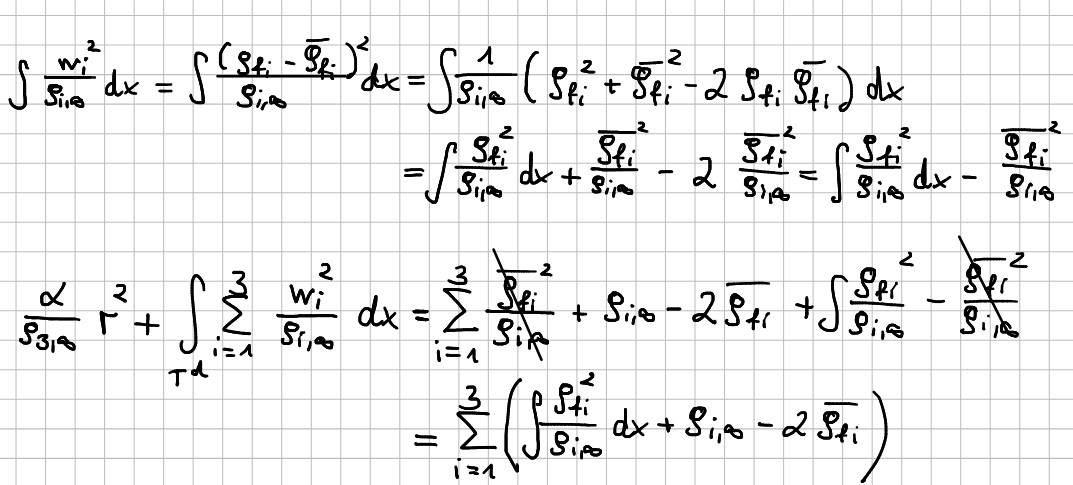 ∫ w_i^2/ρ_{i,∞} dx = ∫ (ρ_{f_i} - \overline{ρ_{f_i}})^2/ρ_{i,∞} dx = ∫ 1/ρ_{i,∞} ( ρ_{f_i}^2 + \overline{ρ_{f_i}}^2 - 2 ρ_{f_i} \overline{ρ_{f_i}} ) dx
= ∫ ρ_{f_i}^2/ρ_{i,∞} dx + \overline{ρ_{f_i}}^2/ρ_{i,∞} - 2 \overline{ρ_{f_i}}^2/ρ_{i,∞} = ∫ ρ_{f_i}^2/ρ_{i,∞} dx - \overline{ρ_{f_i}}^2/ρ_{i,∞}
α/ρ_{3,∞} r^2 + ∫_{T^d} ∑_{i=1}^3 w_i^2/ρ_{i,∞} dx = ∑_{i=1}^3 \overline{ρ_{f_i}}^2/ρ_{i,∞} + ρ_{i,∞} - 2 \overline{ρ_{f_i}} + ∫ ρ_{f_i}^2/ρ_{i,∞} - \overline{ρ_{f_i}}^2/ρ_{i,∞}
= ∑_{i=1}^3 ( ∫ ρ_{f_i}^2/ρ_{i,∞} dx + ρ_{i,∞} - 2 \overline{ρ_{f_i}} )